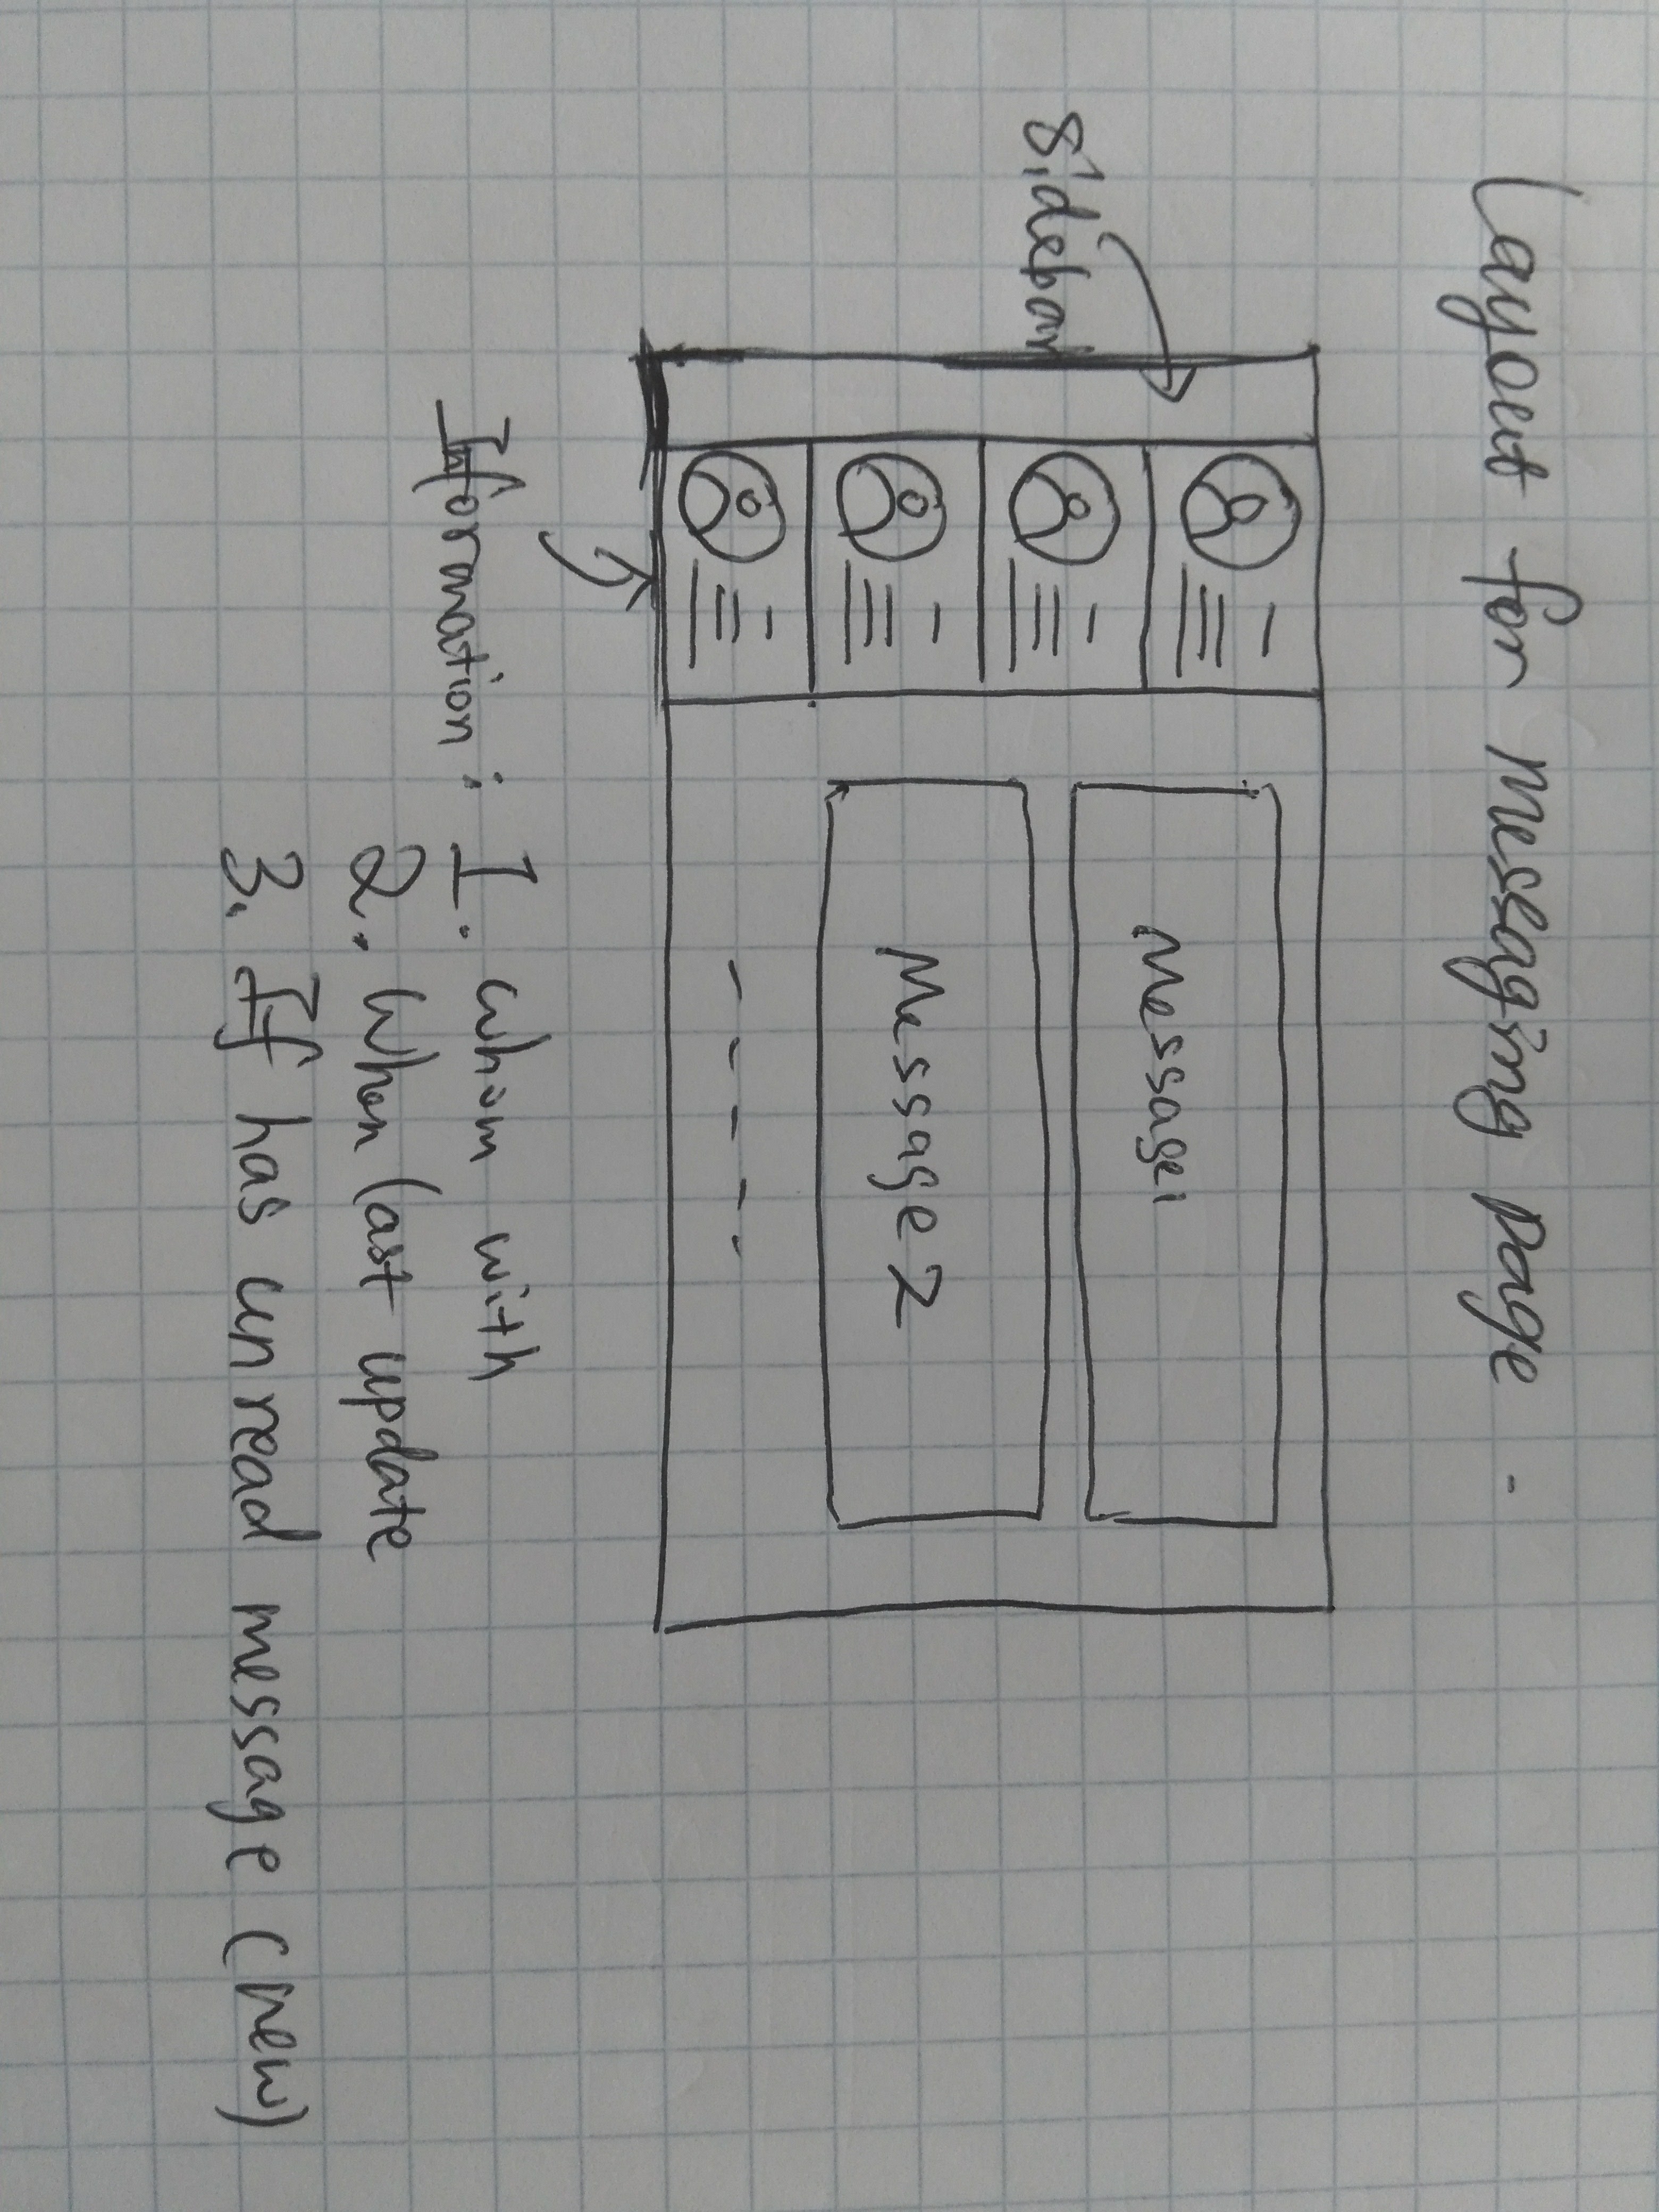 Layout for messaging page -
Sidebar
Message1
Message 2
Information: 1. whom with
2. When last update
3. If has unread message (new)